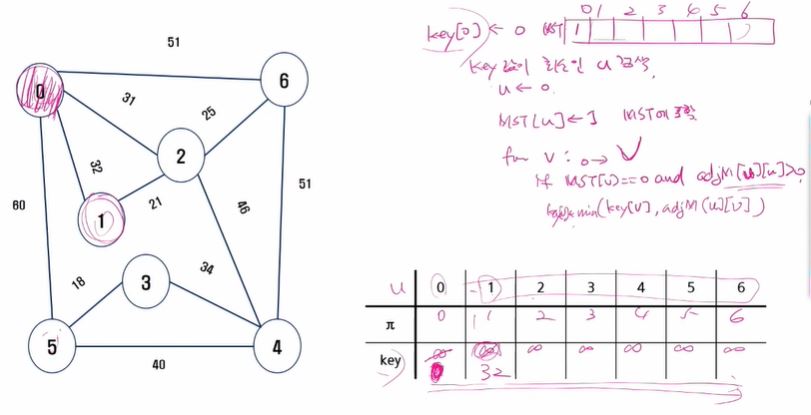 51
0
6
31
25
2
32
21
51
60
1
46
3
34
18
5
4
40
0 1 2 3 4 5 6
key[0] ← 0 MST 1
key 값이 최소인 u
u ← 0
MST[u] ← 1 MST에 포함
for v : 0→V
if MST[v]==0 and adjM[u][v]>0
min(key[v], adjM[u][v])
u 0 1 2 3 4 5 6
π 0 1 2 3 4 5 6
key ∞ ∞ ∞ ∞ ∞ ∞ ∞
0 32